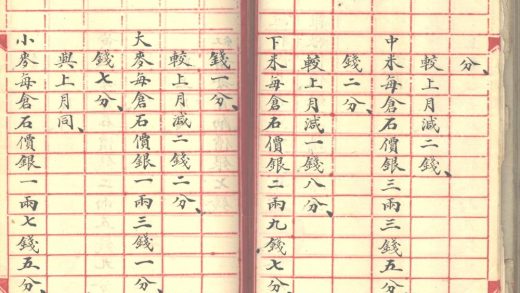 分、
較上月減二錢、
中米每倉石價銀三兩三錢五分、
錢二分、
較上月減一錢八分、
下米每倉石價銀二兩九錢七分、
錢一分、
較上月減二錢二分、
大麥每倉石價銀一兩三錢一分、
錢七分、
與上月同、
小麥每倉石價銀一兩七錢五分、